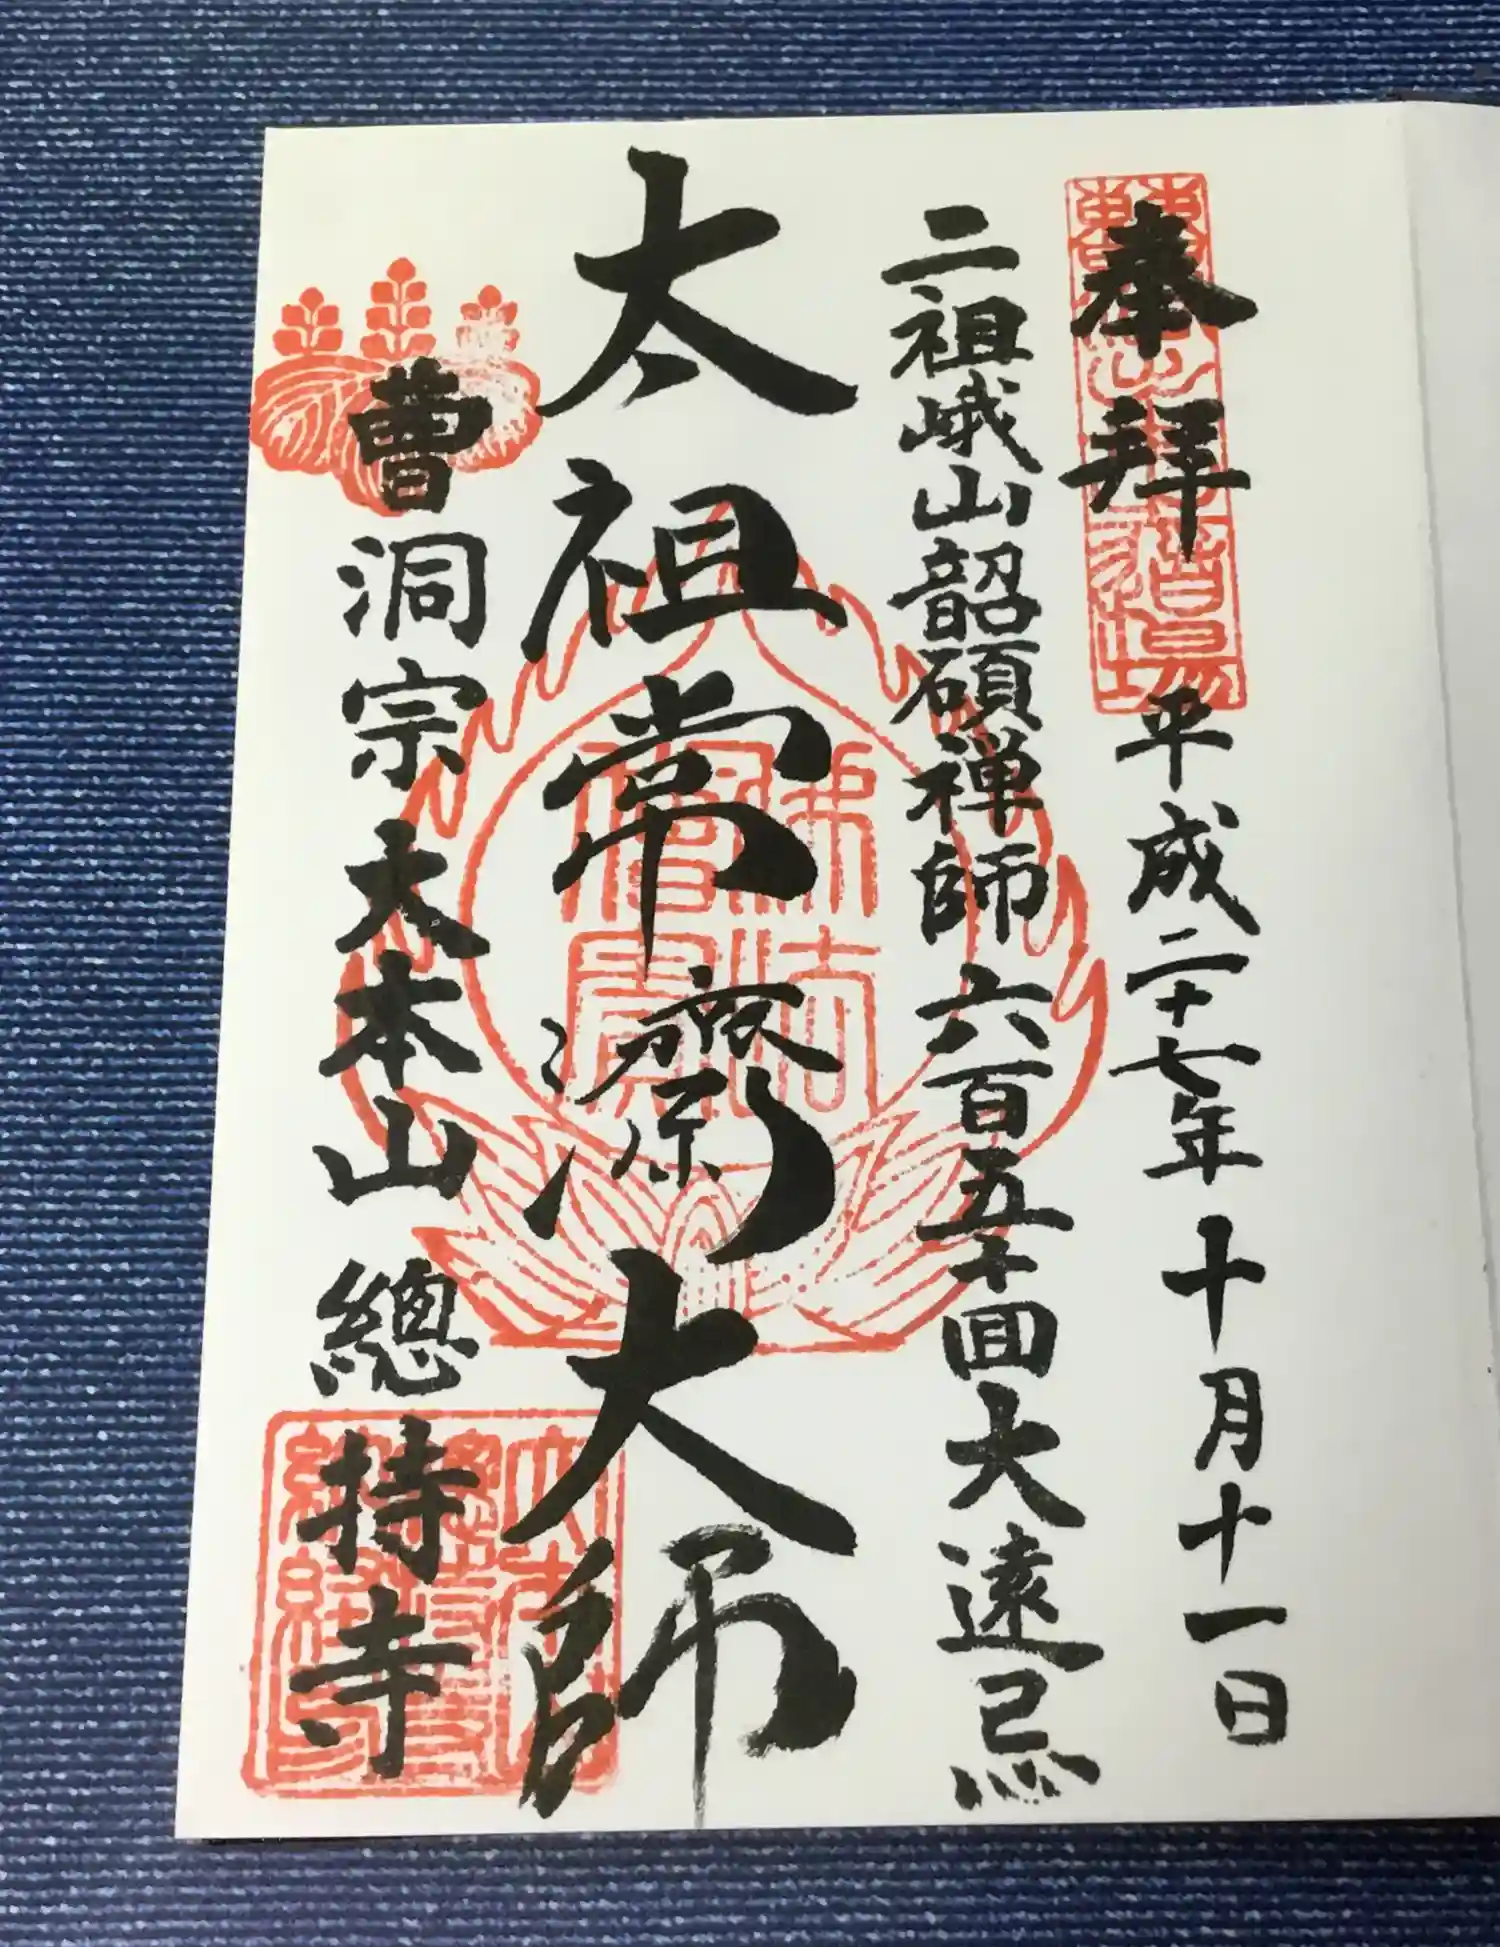 奉拝 平成二十七年十月十一日
二祖峨山韶碩禅師六百五十回大遠忌
太祖常濟大師
曹洞宗大本山總持寺
佛法僧寳